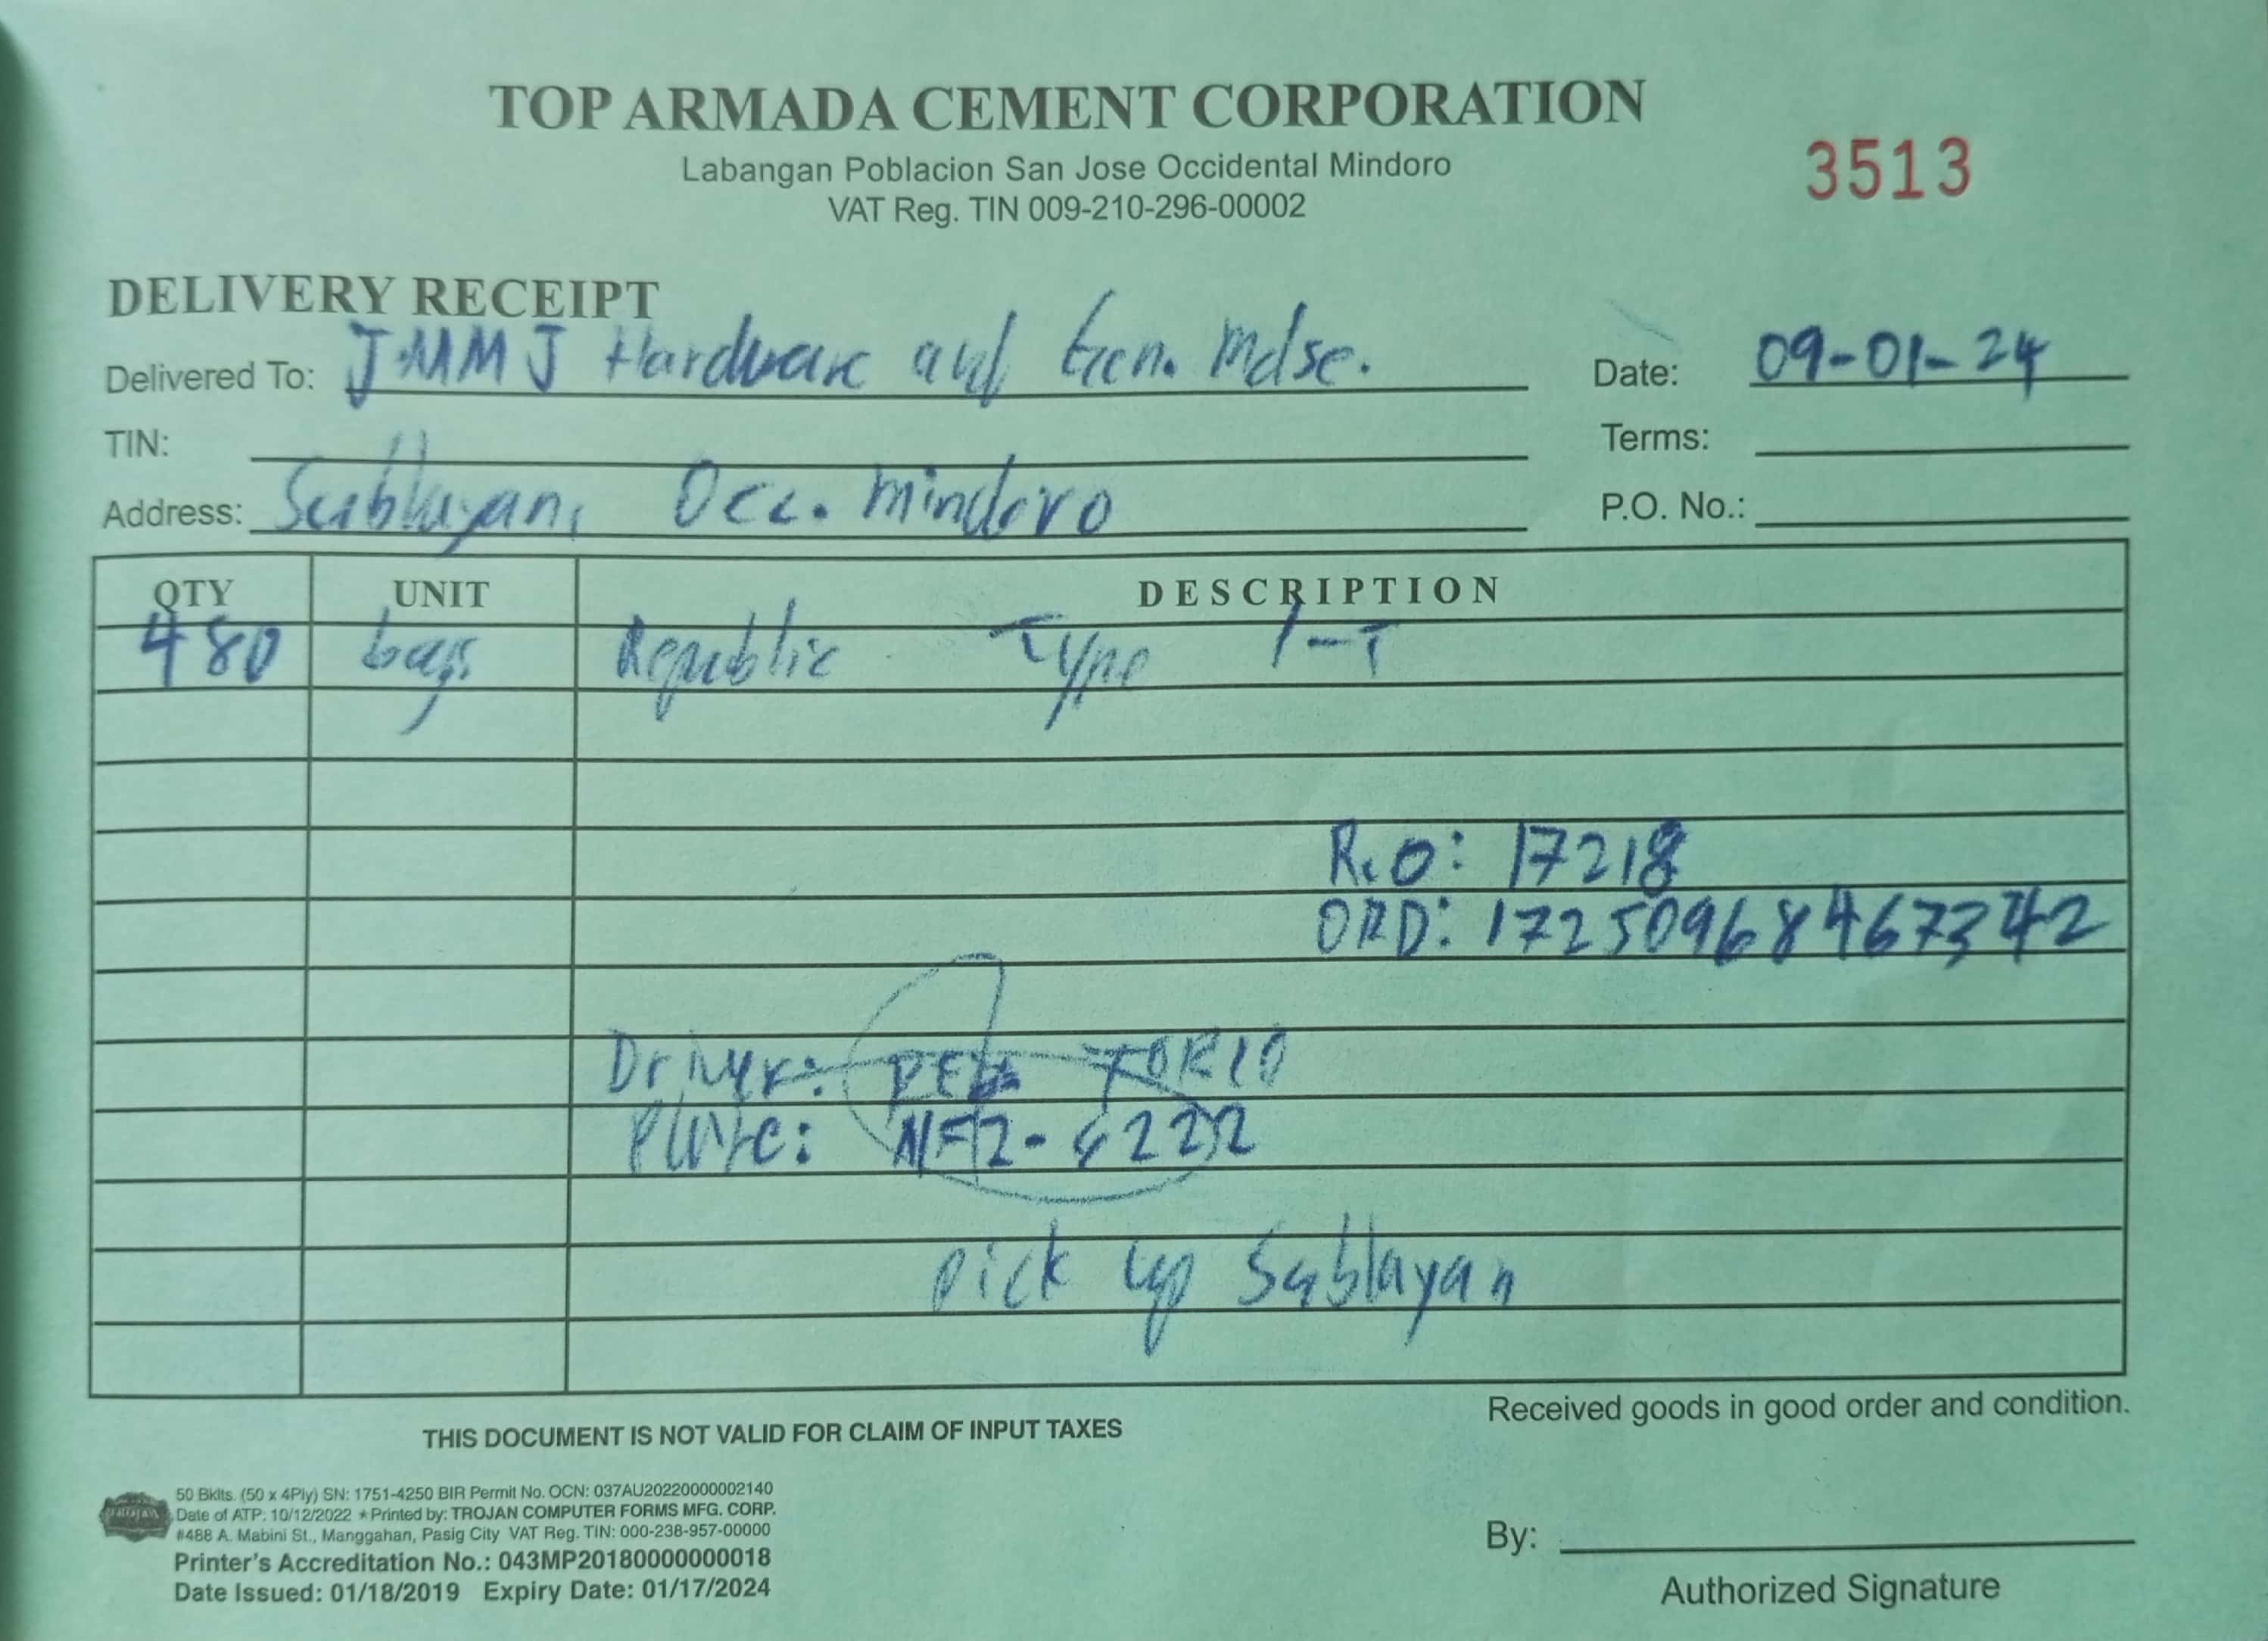 TOP ARMADA CEMENT CORPORATION
Labangan Poblacion San Jose Occidental Mindoro
VAT Reg. TIN 009-210-296-00002
3513
DELIVERY RECEIPT
Delivered To: JMMJ Hardware and Gen. Mdse.
Date: 09-01-24
TIN:
Terms:
Address: Sablayan, Occ. Mindoro
P.O. No.:
QTY UNIT DESCRIPTION
480 bags Republic Type 1-T
R.O: 17218
ORD: 17250968467342
Driver: TORIO
Plate:
pick up Sablayan
Received goods in good order and condition.
THIS DOCUMENT IS NOT VALID FOR CLAIM OF INPUT TAXES
TROJAN
50 Bklts. (50 x 4Ply) SN: 1751-4250 BIR Permit No. OCN: 037AU20220000002140
Date of ATP: 10/12/2022 ★ Printed by: TROJAN COMPUTER FORMS MFG. CORP.
#488 A. Mabini St., Manggahan, Pasig City VAT Reg. TIN: 000-238-957-00000
Printer's Accreditation No.: 043MP20180000000018
Date Issued: 01/18/2019 Expiry Date: 01/17/2024
By:
Authorized Signature